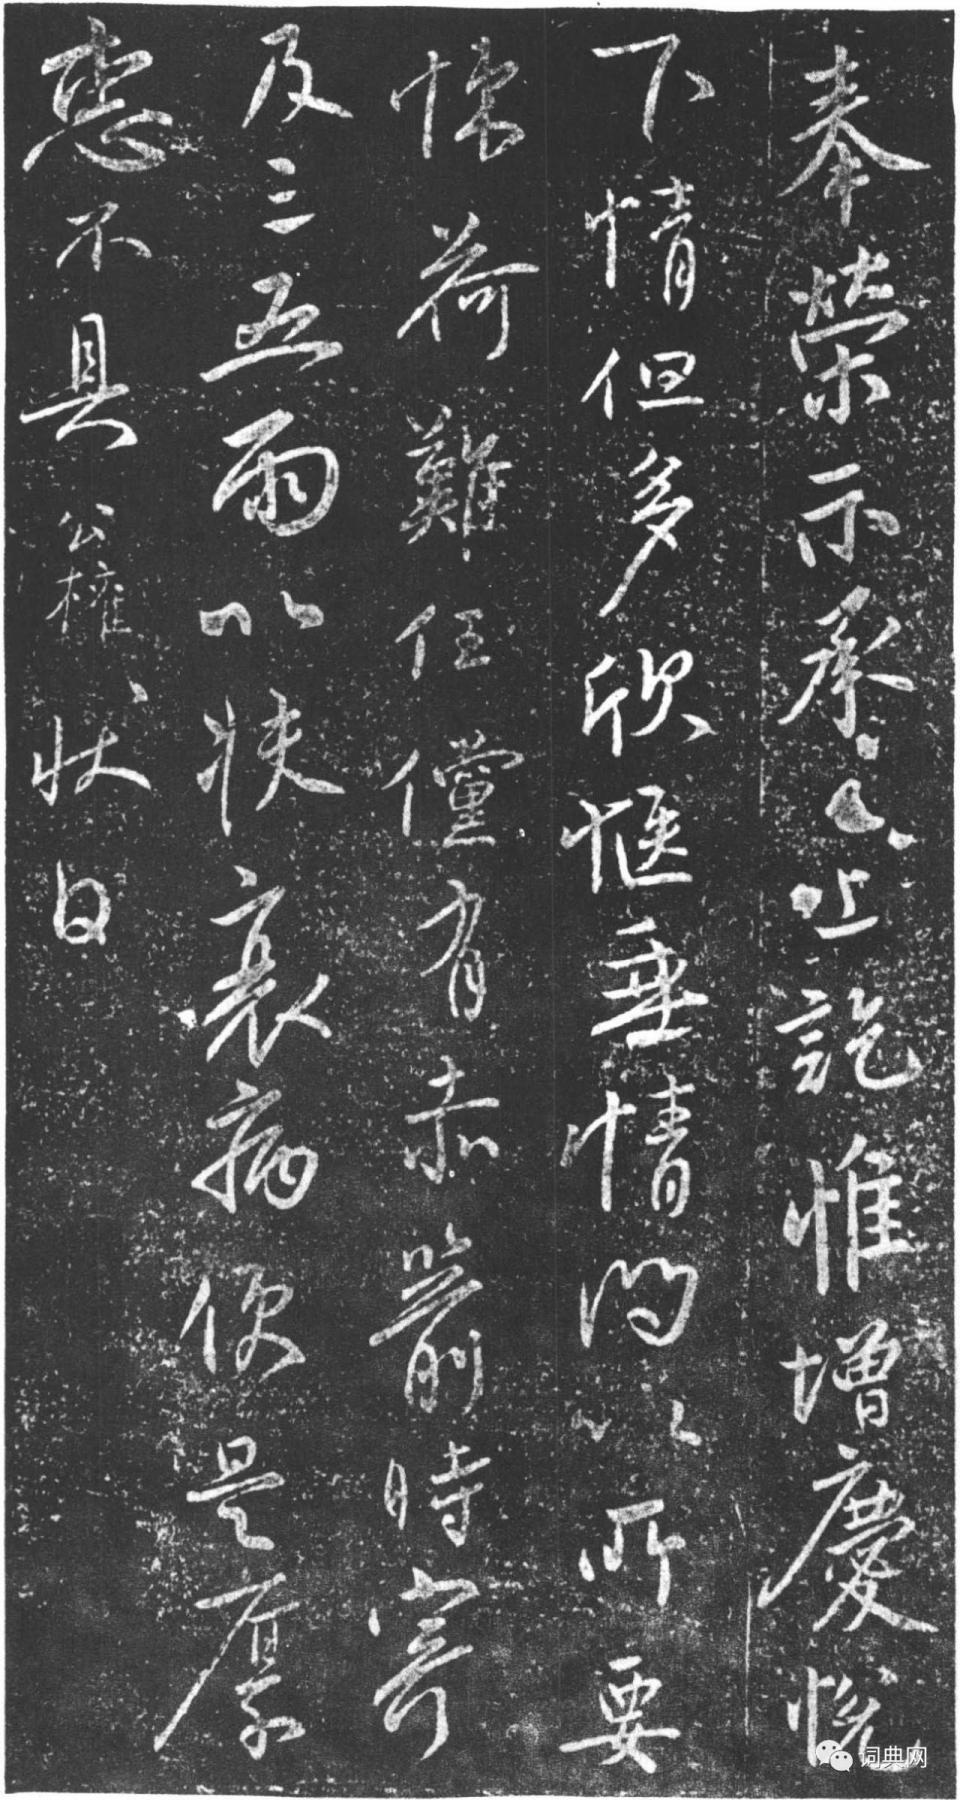 奉榮示承已上訖惟增慶悅
下情但多欣愜垂情問以所要
悚荷難任儻有赤箭時寄
及三五兩以扶衰病便是厚
惠不具公權狀白
词典网